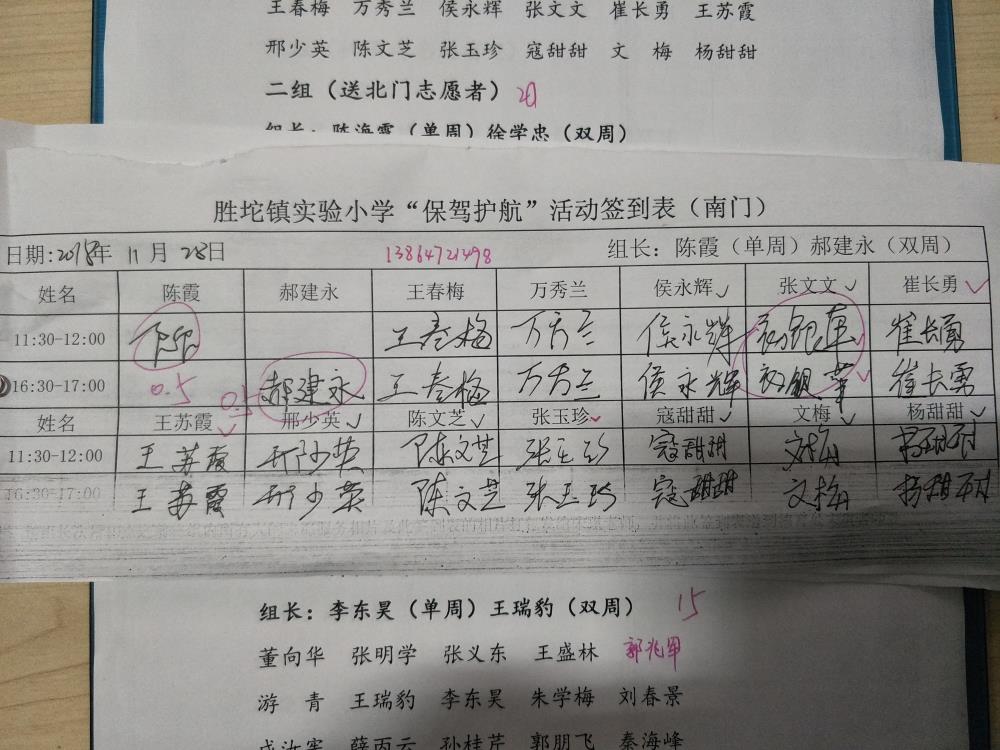 王春梅 万秀兰 侯永辉 张文文 崔长勇 王苏霞
邢少英 陈文芝 张玉珍 寇甜甜 文 梅 杨甜甜
二组（送北门志愿者） 20
组长：陈海霞（单周）徐学忠（双周）
胜坨镇实验小学“保驾护航”活动签到表（南门）
日期:2018年 11 月 28日 13864721498 组长：陈霞（单周）郝建永（双周）
姓名 陈霞 郝建永 王春梅 万秀兰 侯永辉✓ 张文文✓ 崔长勇✓
11:30-12:00 王春梅 万秀兰 侯永辉 崔长勇
16:30-17:00 0.5 0.5 郝建永 王春梅 万秀兰 侯永辉 崔长勇
王苏霞✓ 邢少英✓ 陈文芝✓ 张玉珍✓ 寇甜甜✓ 文梅✓ 杨甜甜✓
11:30-12:00 王苏霞 邢少英 陈文芝 张玉珍 寇甜甜 文梅 杨甜甜
16:30-17:00 王苏霞 邢少英 陈文芝 张玉珍 寇甜甜 文梅 杨甜甜
组长：李东昊（单周）王瑞豹（双周） 15
董向华 张明学 张义东 王盛林 郭兆军
游 青 王瑞豹 李东昊 朱学梅 刘春景
薛丙云 孙桂芹 郭朋飞 秦海峰